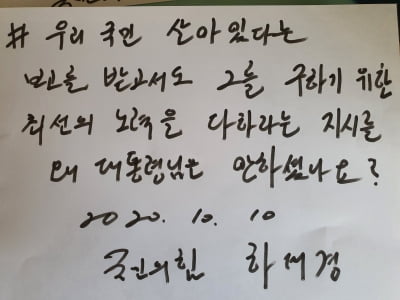 # 우리 국민 살아있다는
보고를 받고서도 그를 구하기 위한
최선의 노력을 다하라는 지시를
왜 대통령님은 안하셨나요?
2020. 10. 10
국민의힘 하태경